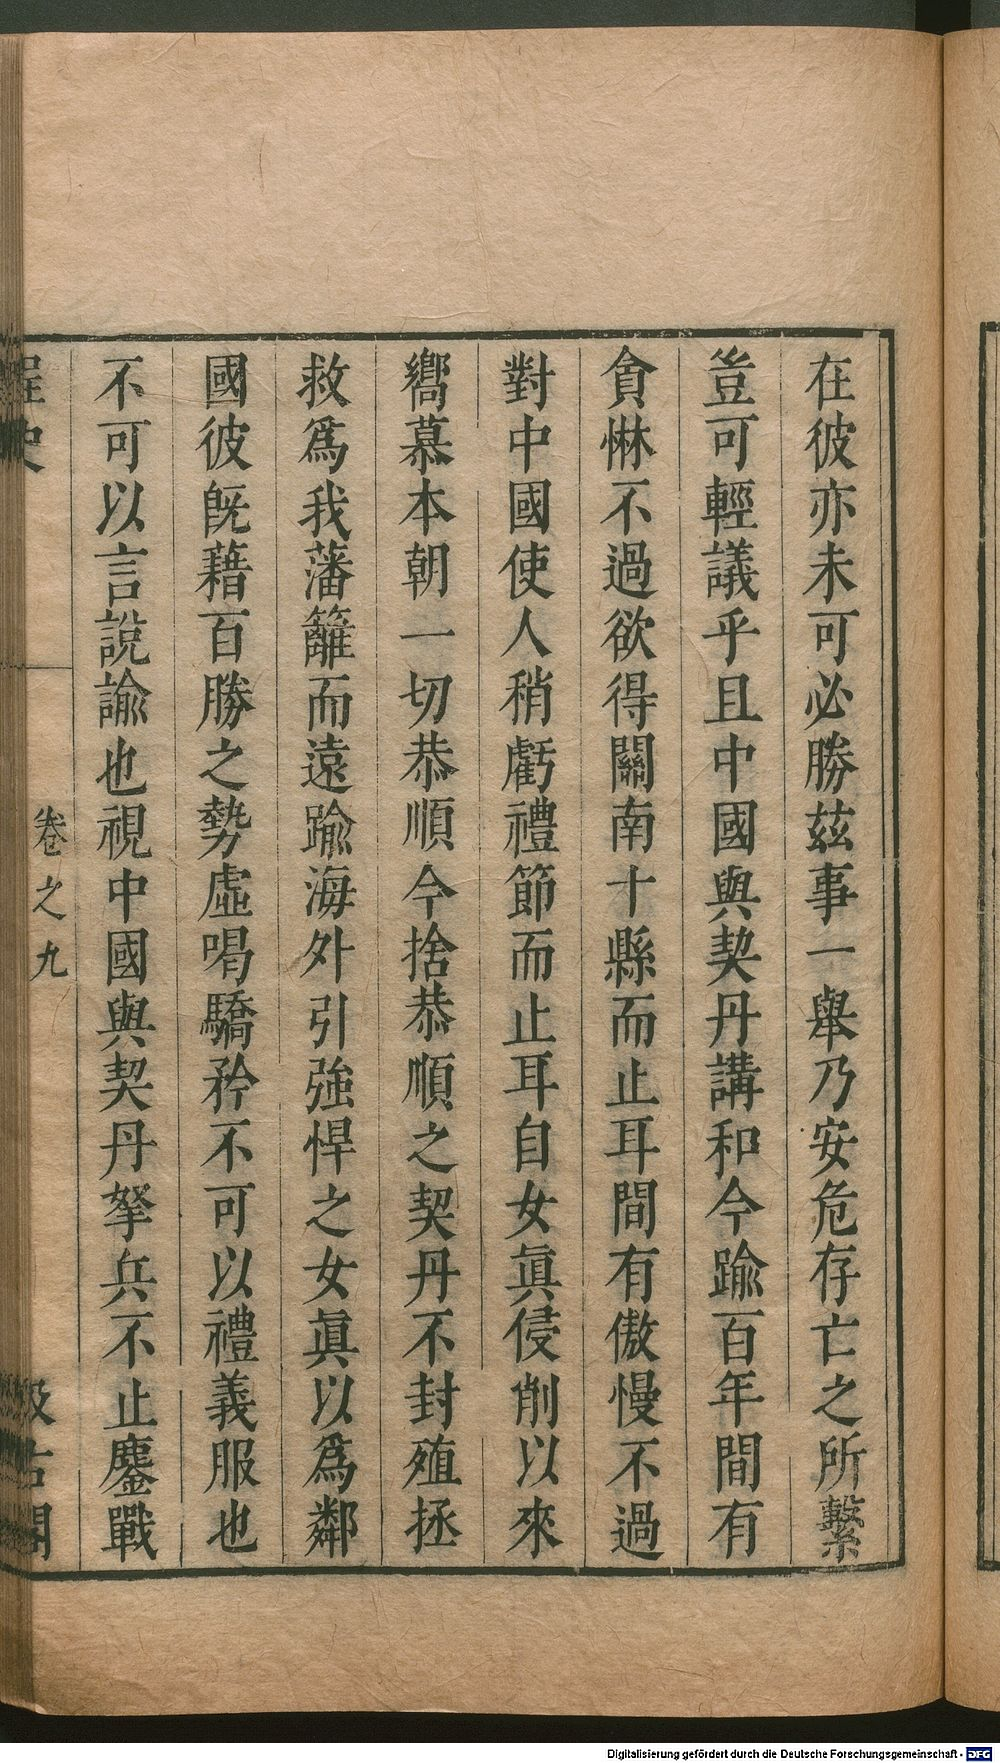 在彼亦未可必勝茲事一舉乃安危存亡之所繫
豈可輕議乎且中國與契丹講和今踰百年間有
貪惏不過欲得關南十縣而止耳間有傲慢不過
對中國使人稍虧禮節而止耳自女眞侵削以來
嚮慕本朝一切恭順今捨恭順之契丹不封殖拯
救爲我藩籬而遠踰海外引強悍之女眞以爲鄰
國彼旣藉百勝之勢虛喝驕矜不可以禮義服也
不可以言說諭也視中國與契丹拏兵不止鏖戰
桯史
卷之九
汲古閣
Digitalisierung gefördert durch die Deutsche Forschungsgemeinschaft - DFG